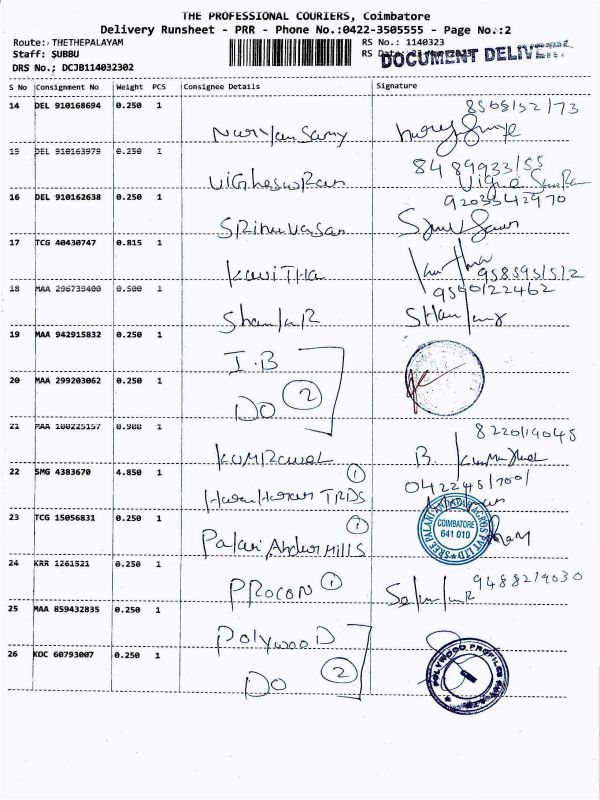 THE PROFESSIONAL COURIERS, Coimbatore
Delivery Runsheet - PRR - Phone No.:0422-3505555 - Page No.:2
Route: THETHEPALAYAM RS No.: 1140323
Staff: SUBBU RS Date:
DOCUMENT DELIVER
DRS No.; DCJB114032302
S No Consignment No Weight PCS Consignee Details Signature
14 DEL 910168694 0.250 1
8508152173
15 DEL 910163979 0.250 1
Vigheswaran 8489933155
16 DEL 910162638 0.250 1
9203342970
Srinuvasan
17 TCG 40430747 0.815 1
Kavitha 9585951512
18 MAA 296739400 0.500 1
9590122462
Shankar
19 MAA 942915832 0.250 1
I.B
20 MAA 299203062 0.250 1
DO 2
21 MAA 100225157 0.900 1
8220119045
B.
22 SMG 4383670 4.850 1
1
04224517001
TRDS
23 TCG 15056831 0.250 1
1
COIMBATORE
641 010
Palani Andur Mills
24 KRR 1261521 0.250 1
PROCON 1 9488219030
25 MAA 859432835 0.250 1
Polywood
26 KOC 60793007 0.250 1
DO 2
POLYWOOD PROFILES